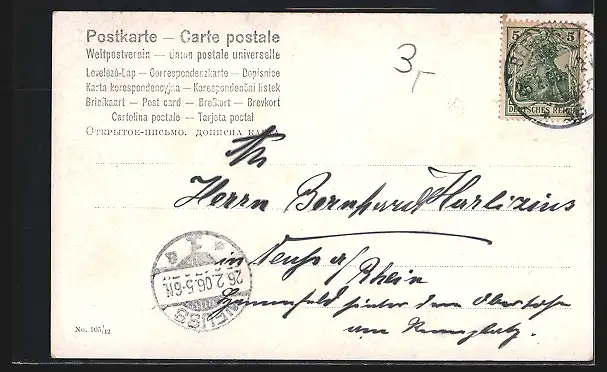 Postkarte — Carte postale
Weltpostverein — Union postale universelle
Levelező-Lap — Correspondenzkarte — Dopisnice
Karta korespondencyjna — Korespondenční listek
Briefkaart — Post card — Brefkort — Brevkort
Cartolina postale — Tarjeta postal
Открытое-письмо. дописна
3,-
5 5
DEUTSCHES REICH
An
Herrn Bernhard Harlizius
in Neuss a/
Rhein
hinter dem Oberthor
am Rennplatz.
NEUSS
26.2.06.5-6N.
No. 105/12